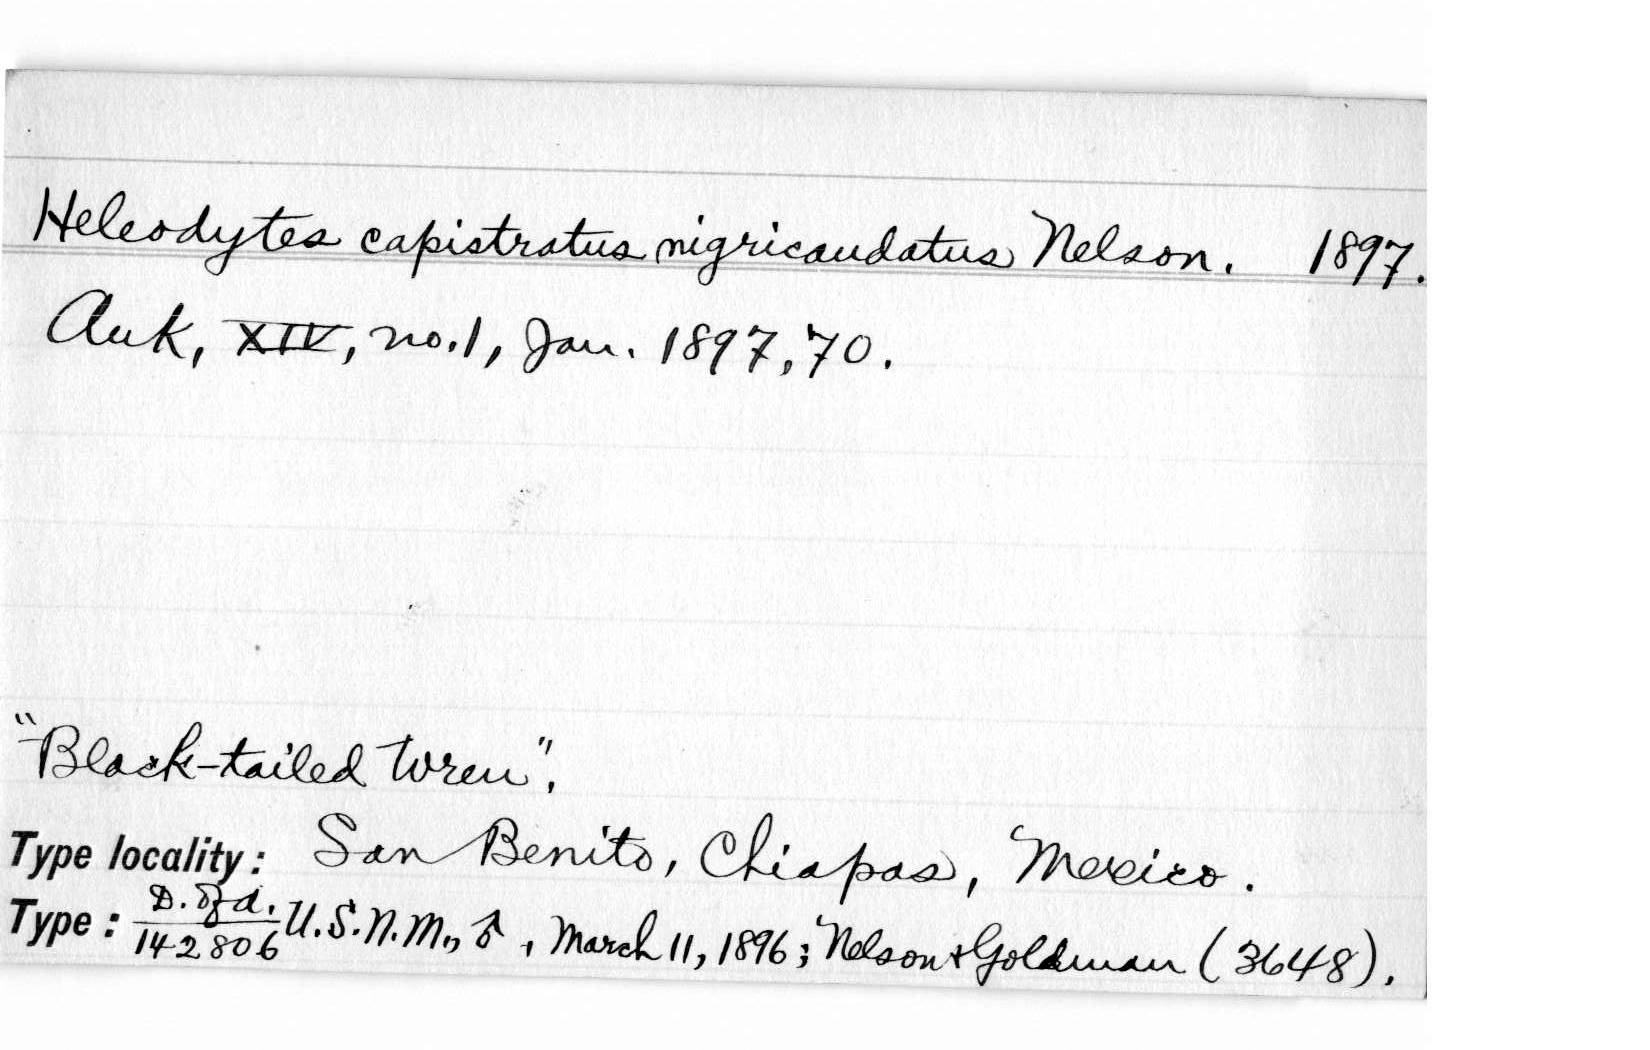 Heleodytes capistratus nigricaudatus Nelson. 1897.
Auk, XIV, no.1, Jan. 1897, 70.
"Black-tailed Wren".
Type locality: San Benito, Chiapas, Mexico.
Type: 142806 U.S.N.M., ♂, March 11, 1896; Nelson & Goldman (3648).